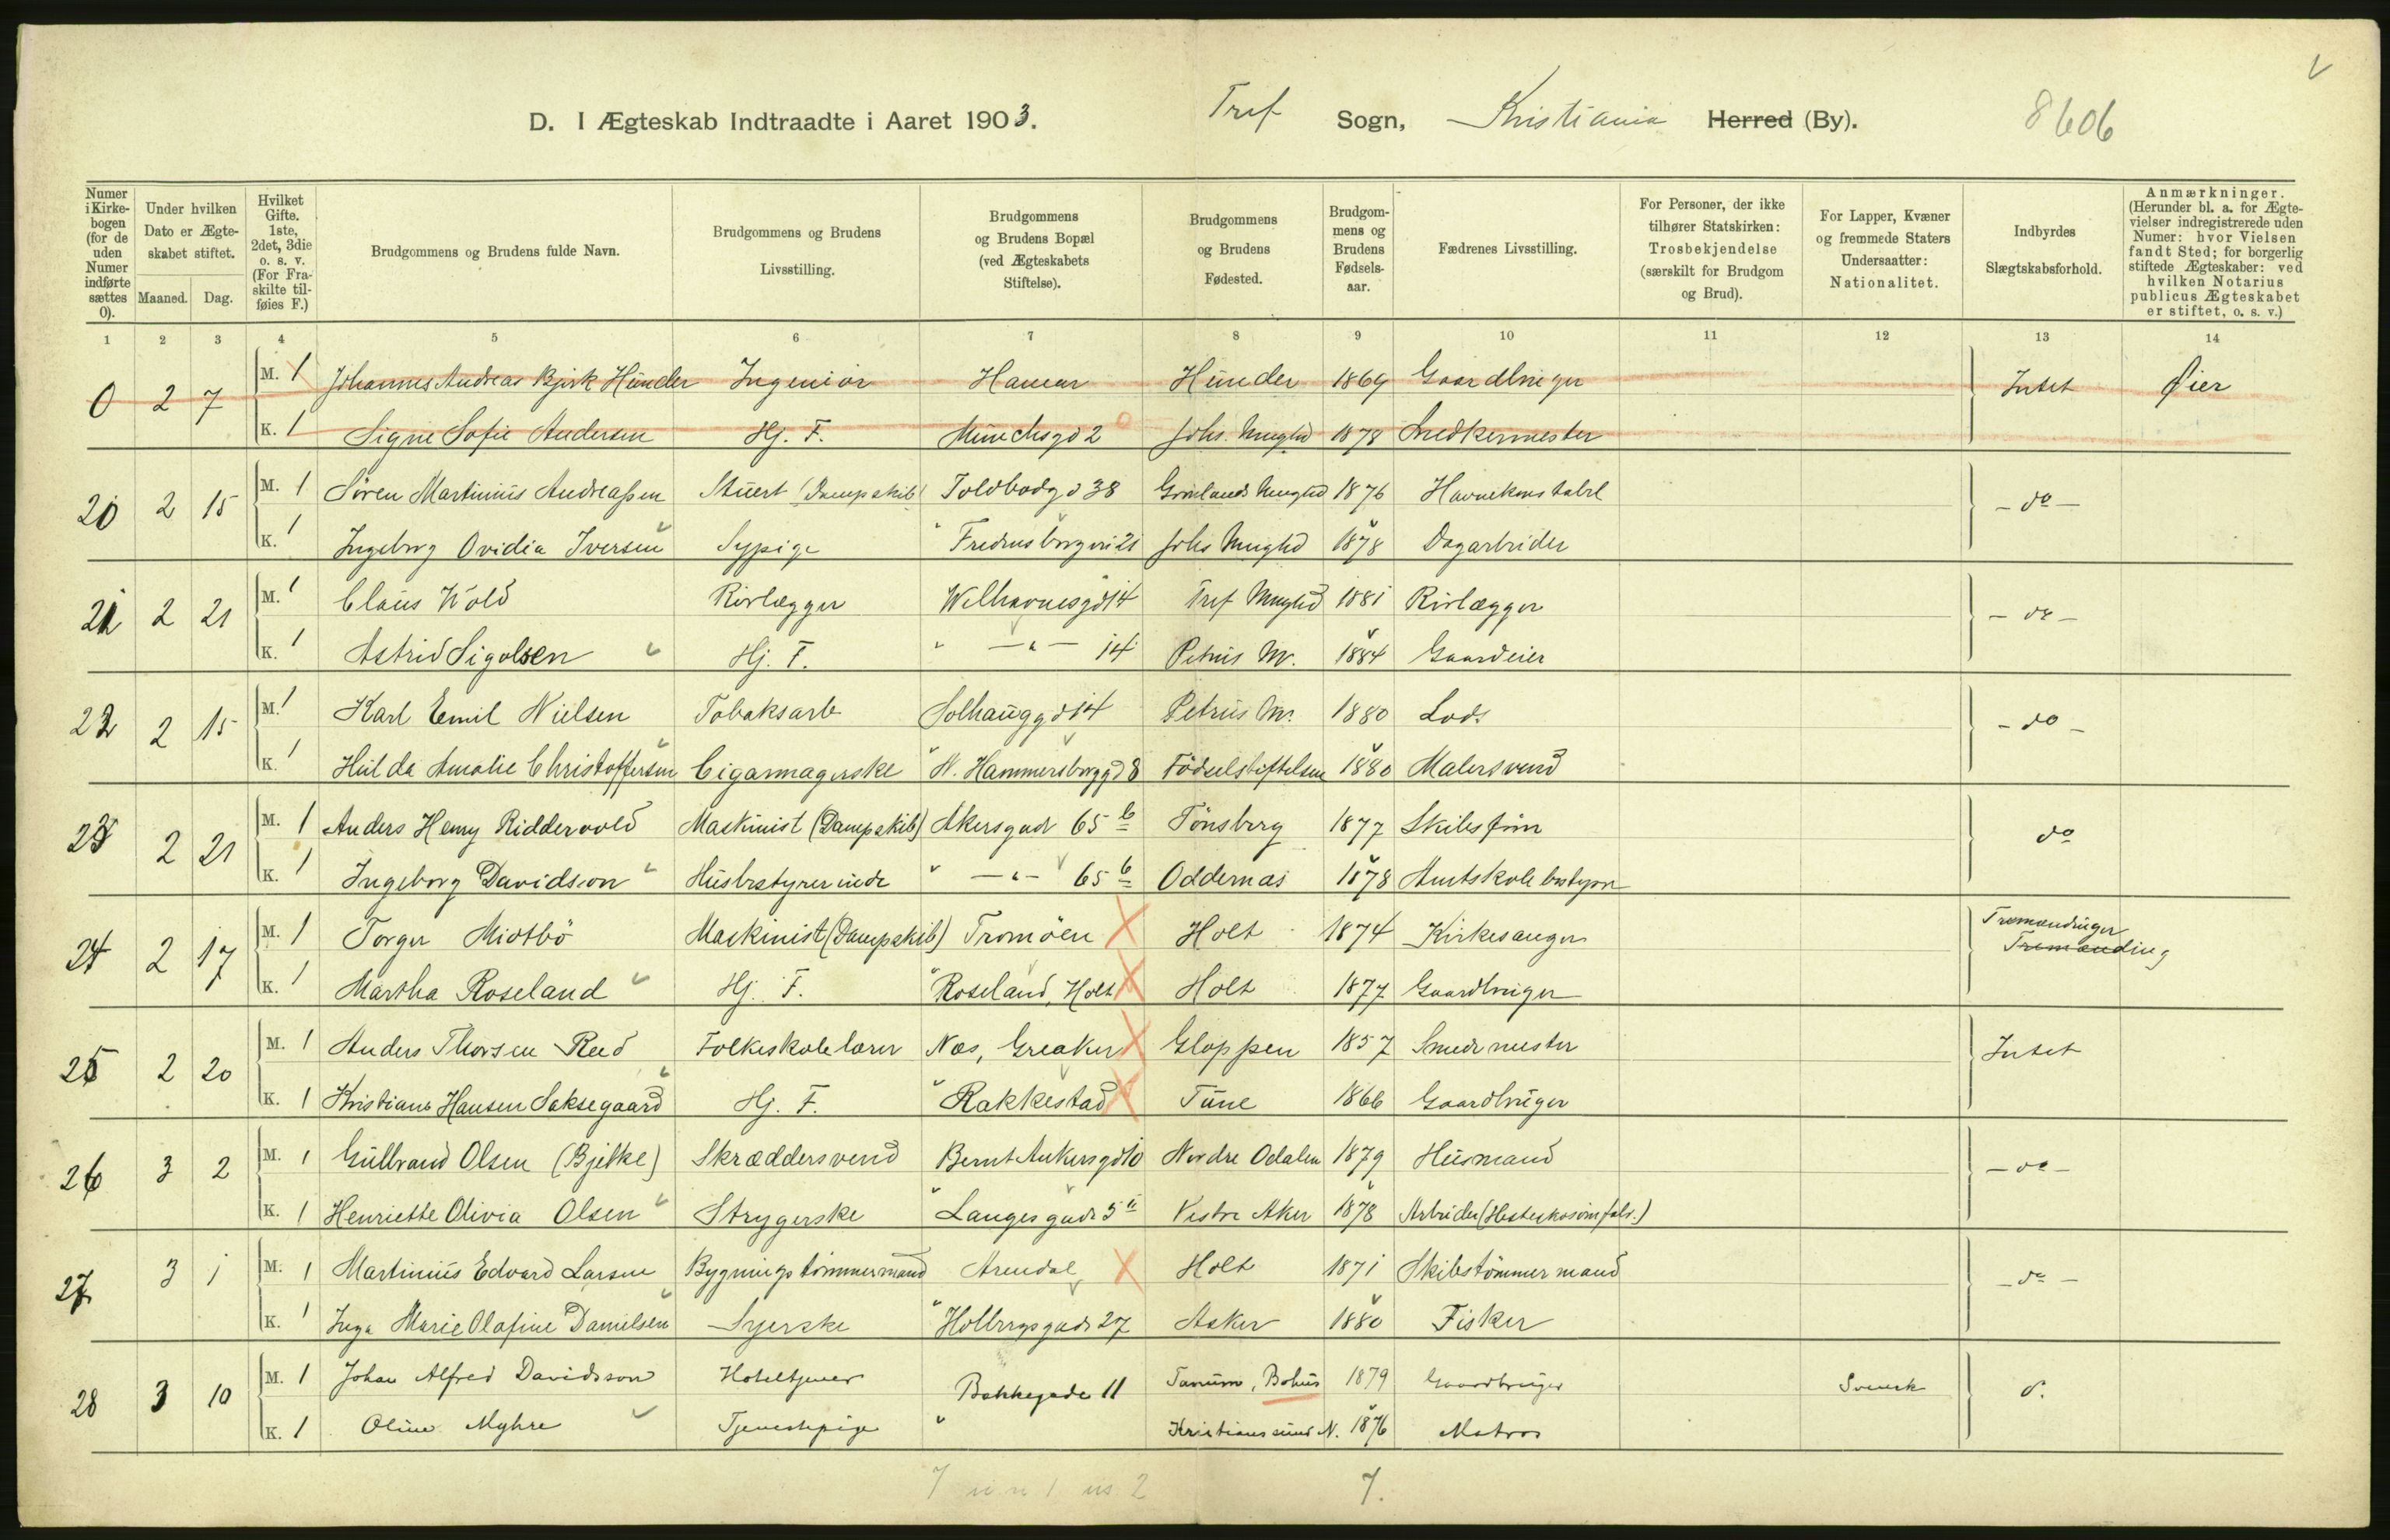 D. I Ægteskab Indtraadte i Aaret 1903. Tref Sogn, Kristiania Herred (By). 8606
Numer i Kirkebogen (for de uden Numer indførte sættes 0).
Under hvilken Dato er Ægteskabet stiftet.
Maaned. Dag.
Hvilket Gifte. 1ste, 2det, 3die o. s. v. (For Fraskilte tilføies F.)
Brudgommens og Brudens fulde Navn.
Brudgommens og Brudens Livsstilling.
Brudgommens og Brudens Bopæl (ved Ægteskabets Stiftelse).
Brudgommens og Brudens Fødested.
Brudgommens og Brudens Fødselsaar.
Fædrenes Livsstilling.
For Personer, der ikke tilhører Statskirken: Trosbekjendelse (særskilt for Brudgom og Brud).
For Lapper, Kvæner og fremmede Staters Undersaatter: Nationalitet.
Indbyrdes Slægtskabsforhold.
Anmærkninger. (Herunder bl. a. for Ægtevielser indregistrerede uden Numer: hvor Vielsen fandt Sted; for borgerlig stiftede Ægteskaber: ved hvilken Notarius publicus Ægteskabet er stiftet, o. s. v.)
1 2 3 4 5 6 7 8 9 10 11 12 13 14
0 2 7 M. 1 Johannes Andreas Bjørk Hunder Ingeniør Hamar Hunder 1869 Gaardbruger Intet Øier
K. 1 Signe Sofie Andersen Hj. F. Munchsgd 2 Johs. Mnghd 1878 Snedkermester
20 2 15 M. 1 Søren Martinius Andreassen Stuert (Dampskib) Toldbodgd 38 Grønlands Mnghd 1876 Havnekonstabel - do -
K. 1 Ingeborg Ovidia Iversen Sypige " Fredensborgvei 21 Johs Mnghd 1878 Dagarbeider
21 2 21 M. 1 Claus Wold Rørlægger Welhavnesgd 14 Tref Mnghd 1881 Rørlægger - do -
K. 1 Astrid Sigolsen Hj. F. " - " - 14 Petrus M. 1884 Gaardeier
22 2 15 M. 1 Karl Emil Nielsen Tobaksarb Solhauggd 14 Petrus M. 1880 Lods - do -
K. 1 Hulda Amalie Christoffersen Cigarmagerske " N. Hammersborggd 8 Fødselstiftelsen 1880 Malersvend
23 2 21 M. 1 Anders Henry Riddervold Maskinist (Dampskib) Akersgade 65 b Tønsberg 1877 Skibsfører do
K. 1 Ingeborg Davidson Husbestyrerinde " - " - 65 b Oddernæs 1878 Amtskolebestyrer
24 2 17 M. 1 Torger Midtbø Maskinist (Dampskib) Tromøen Holt 1874 Kirkesanger Tremændinger
Tremænding
K. 1 Martha Roseland Hj. F. " Roseland, Holt Holt 1877 Gaardbruger
25 2 20 M. 1 Anders Thorsen Reed Folkeskolelærer Næs, Greaker Gloppen 1857 Smedmester Intet
K. 1 Kristiane Hansen Saksegaard Hj. F. " Rakkestad Tune 1866 Gaardbruger
26 3 2 M. 1 Gulbrand Olsen (Bjelke) Skræddersvend Bernt Ankersgd 10 Nordre Odalen 1879 Husmand - do -
K. 1 Henriette Olivia Olsen Strygerske " Langesgade 5 II Vestre Aker 1878 Arbeider (Hesteskosømfabr.)
27 3 1 M. 1 Martinius Edvard Larsen Bygningstømmermand Arendal Holt 1871 Skibstømmermand - do -
K. 1 Inga Marie Olafine Danielsen Syerske " Holbergsgade 27 Asker 1880 Fisker
28 3 10 M. 1 Johan Alfred Davidsson Hoteltjener Bakkegade 11 Tanum, Bohus 1879 Gaardbruger Svensk d.
K. 1 Oline Myhre Tjenestepige " Kristianssund N. 1876 Matros
7.